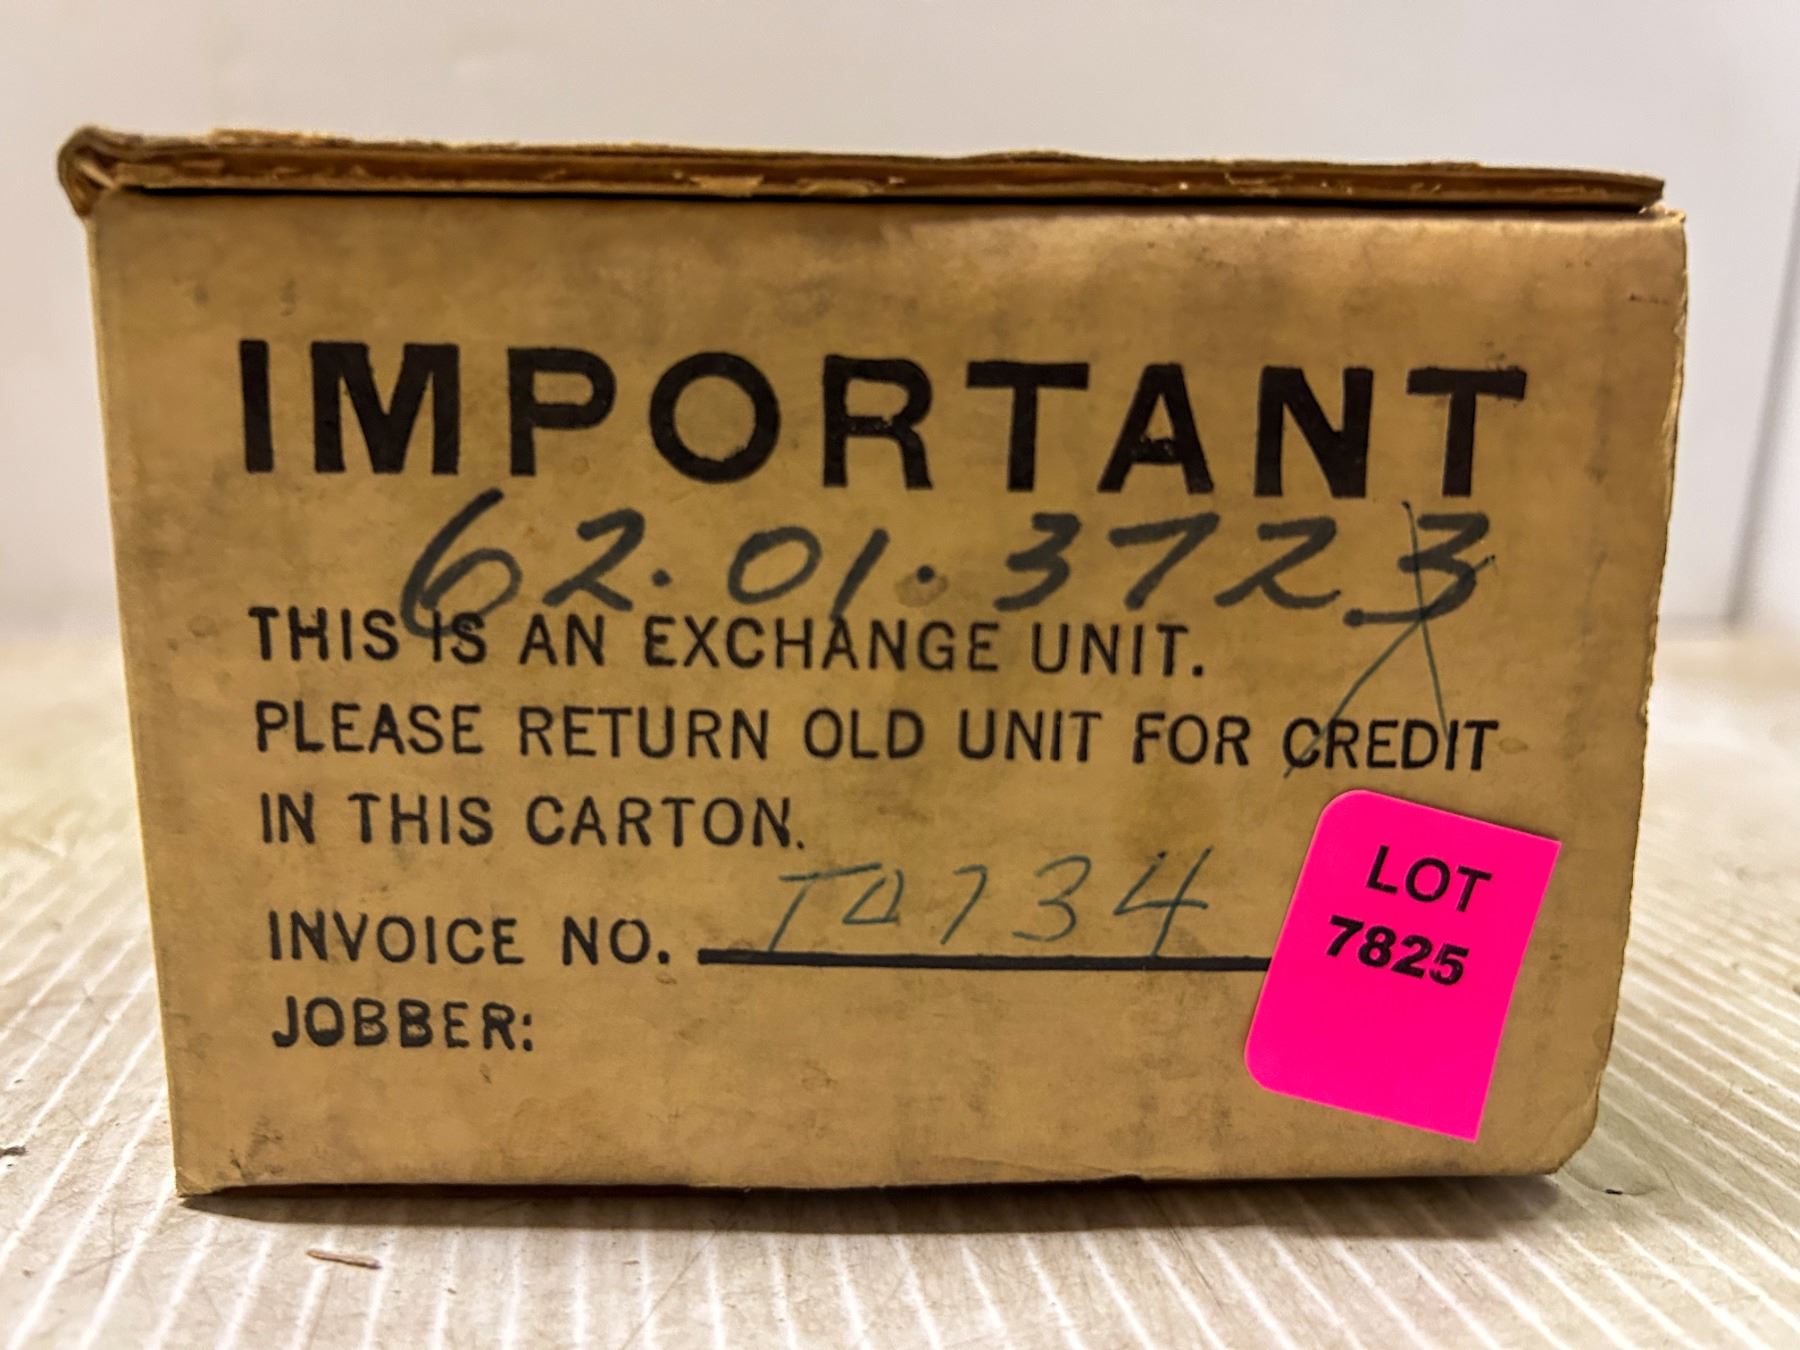 IMPORTANT
62.01.3723
THIS IS AN EXCHANGE UNIT.
PLEASE RETURN OLD UNIT FOR CREDIT
IN THIS CARTON.
INVOICE NO. T4734
JOBBER:
LOT
7825